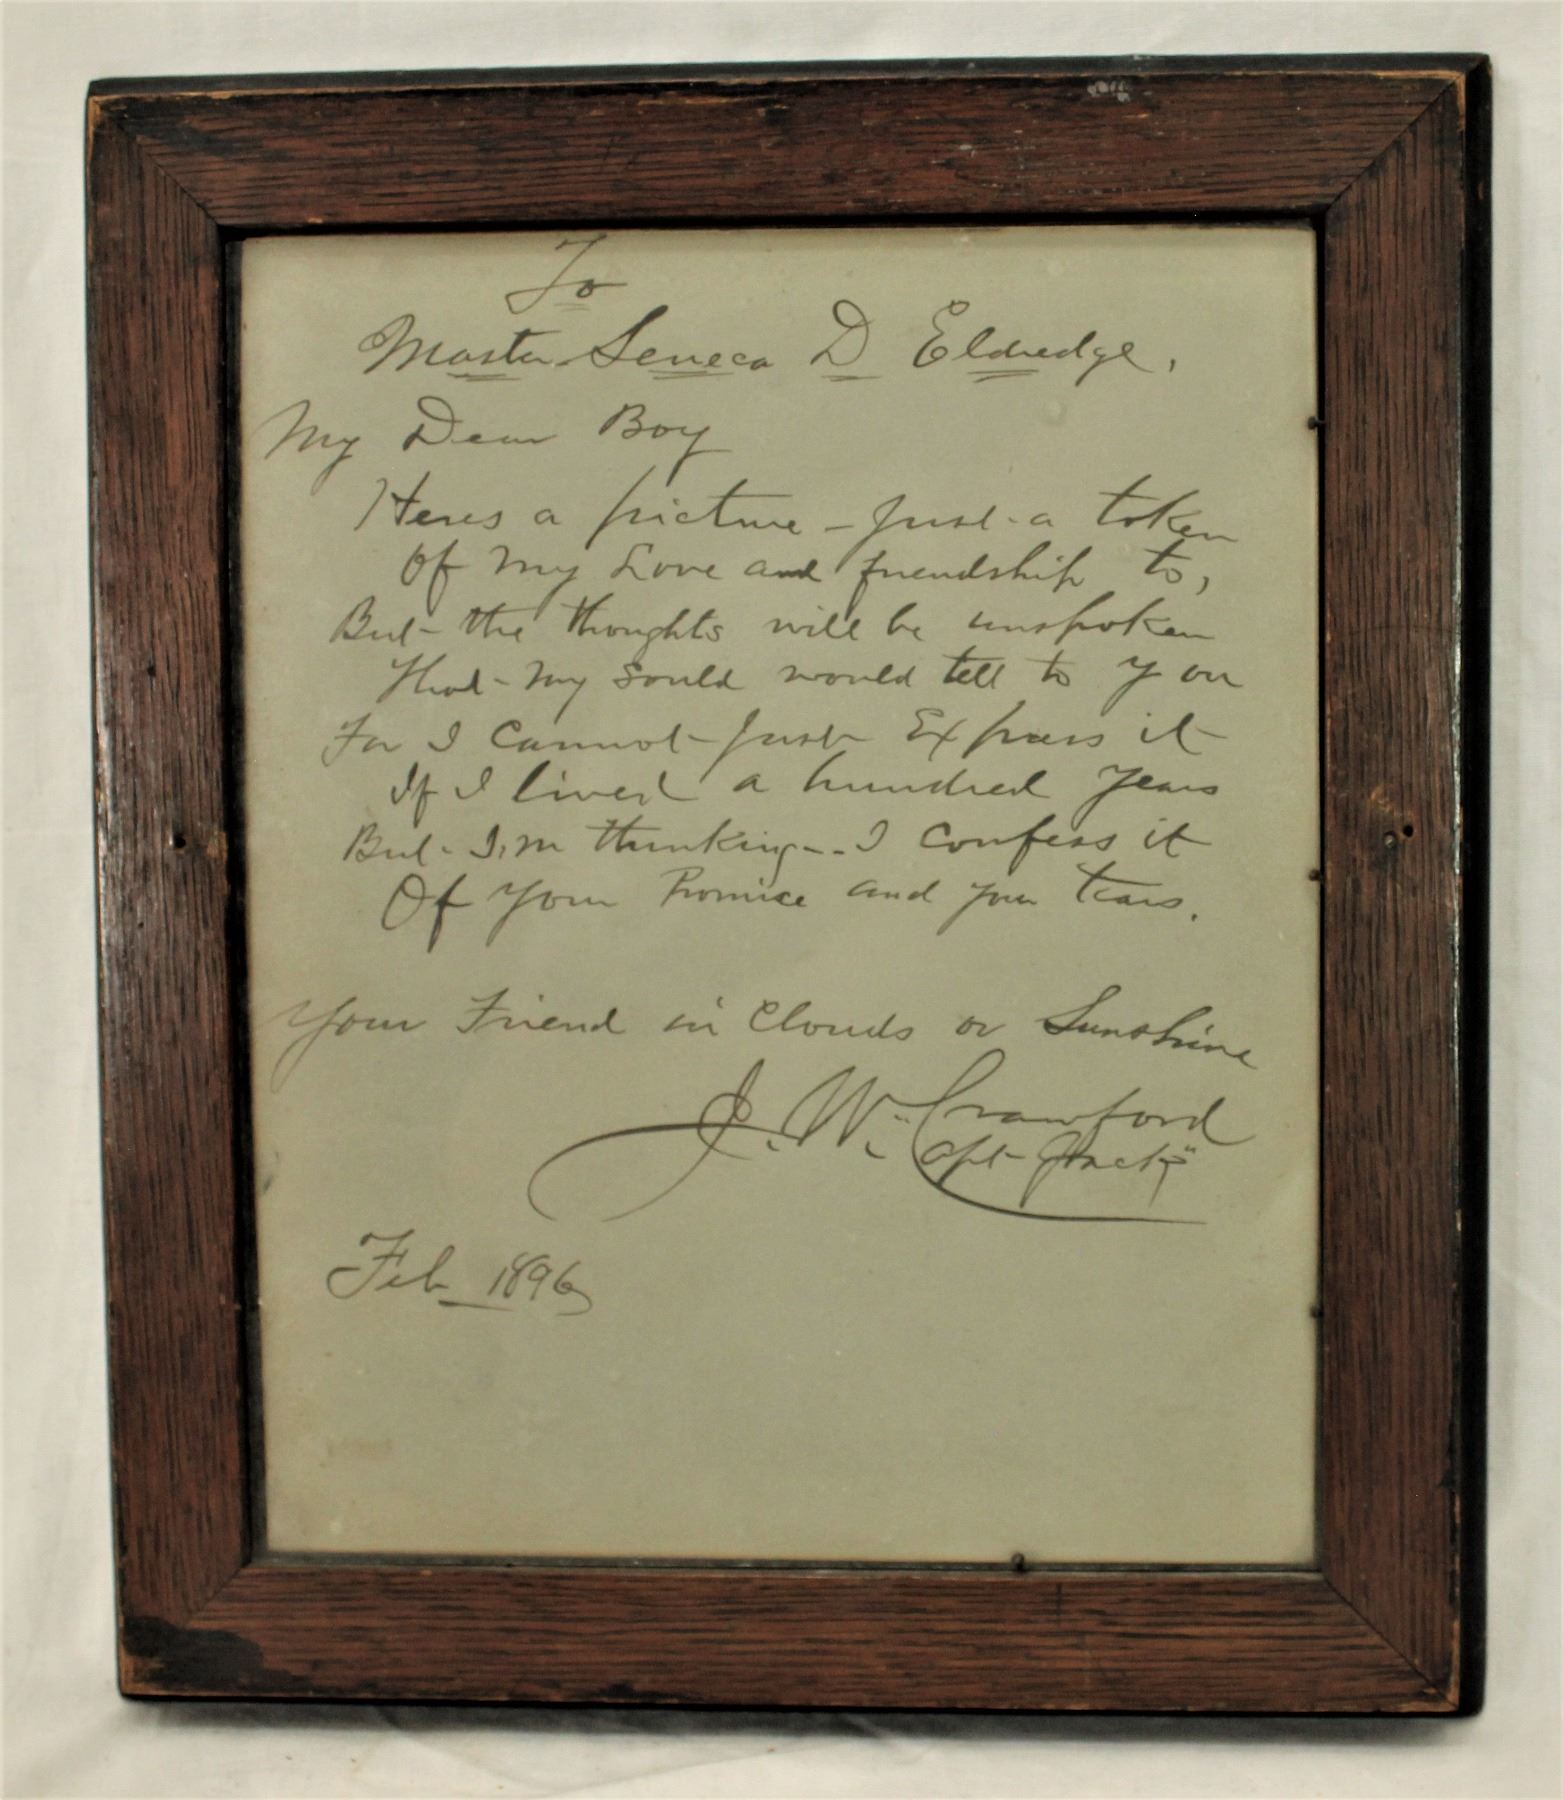 To
Master Seneca D Eldredge,
My Dear Boy
Heres a picture - Just a token
Of my Love and friendship to,
But - the thoughts will be unspoken
That - my sould would tell to you
For I cannot - just Express it
If I lived a hundred years
But - I,m thinking -- I confess it
Of your Promise and your tears.
Your Friend in Clouds or Sunshine
J. W. Crawford
"Capt Jack"
Feb 1896